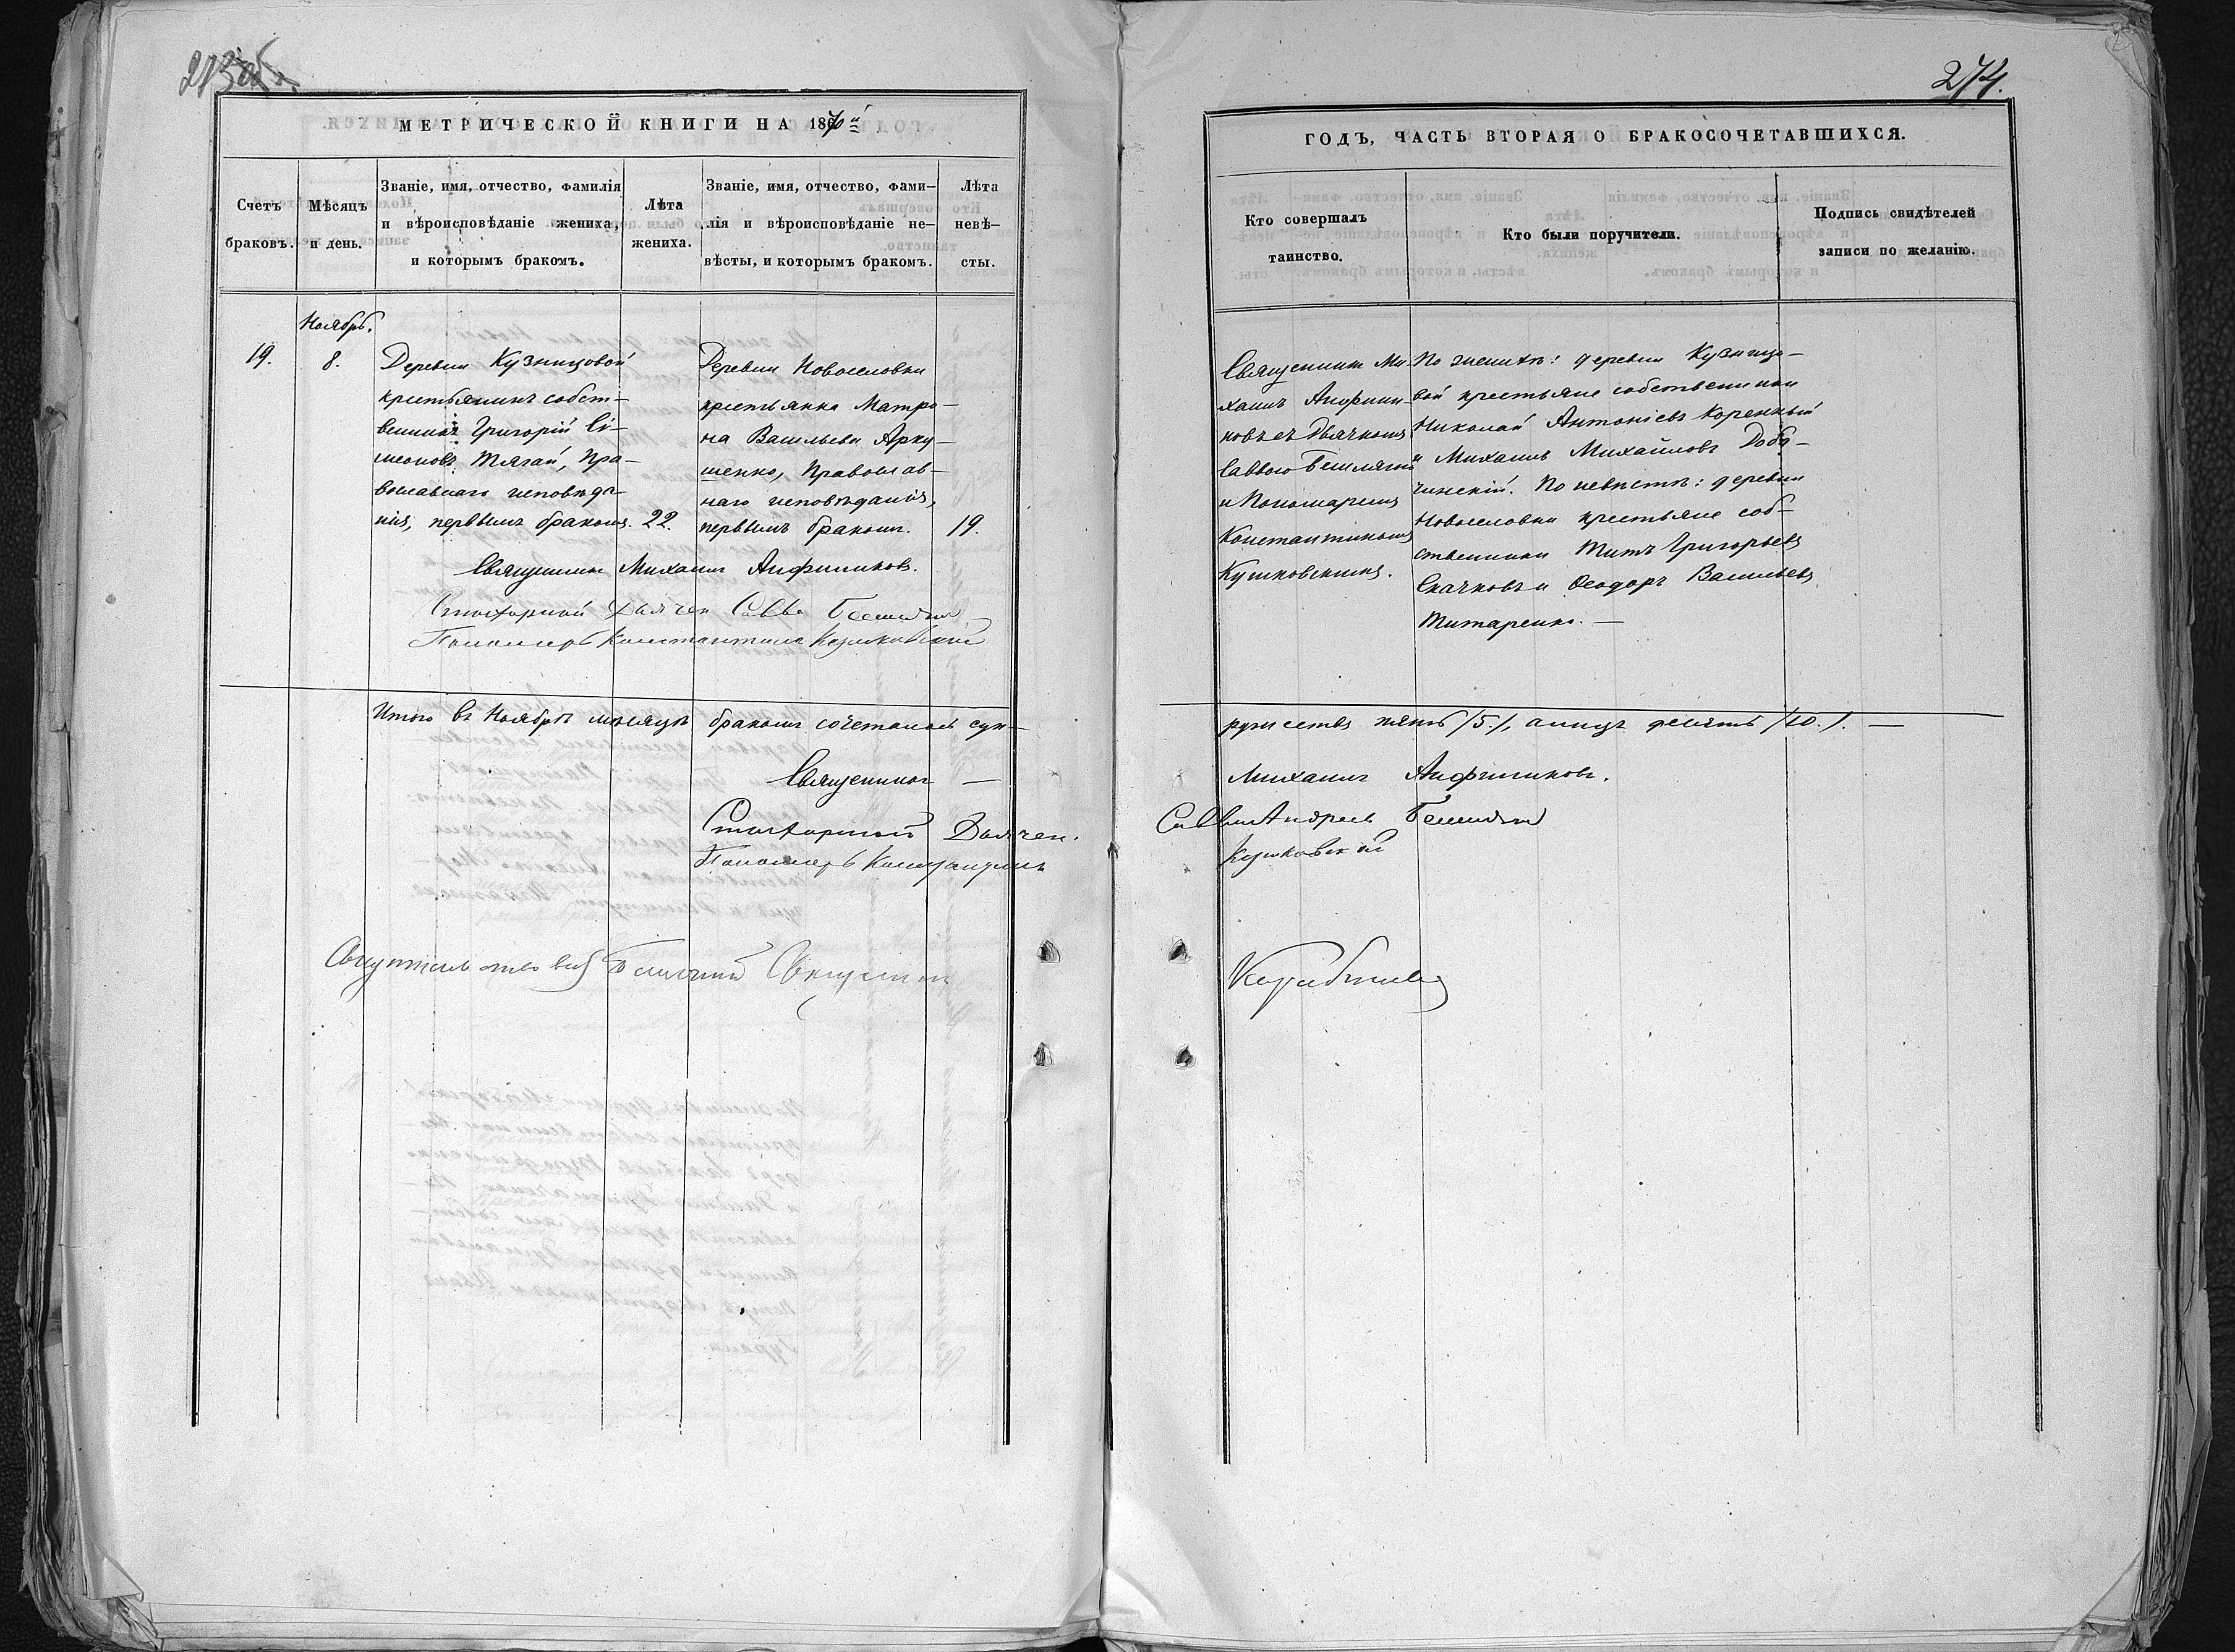 273 об.
МЕТРИЧЕСКОЙ КНИГИ НА 1870й
Счетъ браковъ.
Мѣсяцъ и день.
Званіе, имя, отчество, фамилія
и вѣроисповѣданіе жениха,
и которымъ бракомъ.
Лѣта
жениха.
Званіе, имя, отчество, фами-
лія и вѣроисповѣданіе не-
вѣсты, и которымъ бракомъ.
Лѣта
невѣ-
сты.
Ноябрь.
19.
8.
Деревни Кузницовой
крестьянинъ собст-
венникъ Григорій Сі-
меоновъ Тягай, Пра-
вославнаго исповѣда-
нія, первымъ бракомъ.
22.
Деревни Новоселовки
крестьянка Матро-
на Васильева Арку-
шенко, Православ-
наго исповѣданія,
первымъ бракомъ.
19.
Священникъ Михаилъ Анфиниковъ.
Стихарный Дьячек Савва
Пономарь Константинъ
Итого въ Ноябрѣ мѣсяцѣ бракомъ сочеталось суп-
Священникъ —
Стихарный Дьячек.
Пономарь Константинъ
274.
ГОДЪ, ЧАСТЬ ВТОРАЯ О БРАКОСОЧЕТАВШИХСЯ.
Кто совершалъ
таинство.
Кто были поручители.
Подпись свидѣтелей
записи по желанію.
Священникъ Ми-
хаилъ Анфини-
ковъ съ Дьячкомъ
Саввою
и Пономаремъ
Константиномъ
По женихѣ: деревни Кузницо-
вой крестьяне собственники
Николай Антоніевъ Коренный
и Михаилъ Михайловъ Доба-
чинскій. По невѣстѣ: деревни
Новоселовки крестьяне соб-
ственники Титъ Григорьевъ
Скачковъ и Ѳеодоръ Васильевъ
Титаренко. —
ружествъ пять /5./, а лицъ десять /10./. —
Михаилъ Анфиниковъ.
Савва Андреев